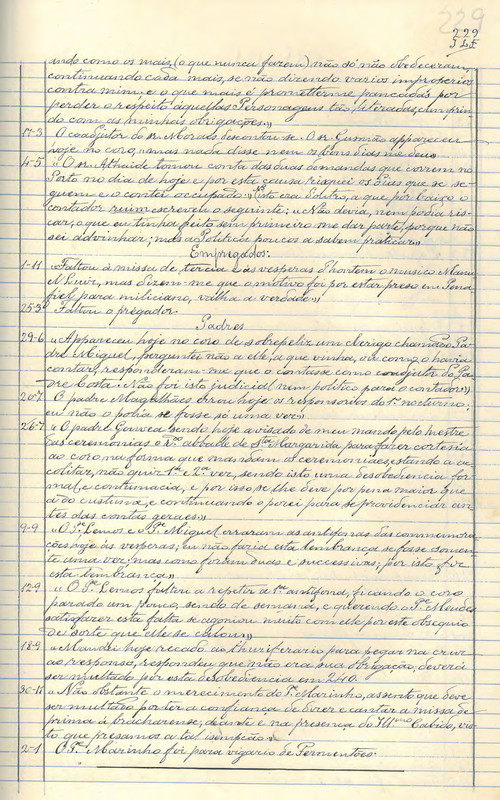 229
229
ando como os mais, (o que nunca fazem) não só não obedeceram,
continuando cada mais, se não dizendo varios improperios
contra mim, e o que mais é prometterme pancadas por
perder o respeito áquellas Personagens tão literadas, cumprin
do com as minhas obrigações.»
17-3 O coadjutor do sr. Moraes descontou-se. O sr. Gusmão appareceu
hoje no coro, mas nada disse nem os bons dias me deu»
4-5 «O sr. Athaide tomou conta das duas demandas que correm no
Porto no dia de hoje e por esta causa risquei os dias que se se-
guem e o contei occupado» (Isto era d'outro, a que por baixo o
contador ruim escreveu o seguinte: «Não devia, nem podia ris-
car, o que eu tinha feito sem primeiro me dar parte, porque não
sei advinhar; mas a Politica poucos a sabem praticar»
Empregados:
1-11 «Faltou á missa de tercia e ás vesperas d'hontem o musico Manu
el Luiz, mas dizem-me que o motivo foi por estar preso em Pena
fiel para miliciano, valha a verdade»
25-3 Faltou o prégador.
Padres
29-6 «Appareceu hoje no coro de sobrepeliz um clerigo chamado Pa-
dre Miguel, perguntei não a elle, a que vinha, ou como o havia
contar, responderam-me que o contasse como coadjutor do Pa-
dre Costa. Não foi isto judicial nem politico para o contador»)
20-7 O padre Magalhães errou hoje os responsorios do 1º nocturno;
eu não o polia se fosse só uma vez»
26-7 O padre Gouvea sendo hoje avisado de meu mando pelo mestre
das ceremonias o Rdo abbade de Sta Margarida para fazer cortezia
ao coro na forma que mandam as ceremonias, estando a a-
colitar, não quiz 1ª e 2ª vez, sendo isto uma desobediencia for-
mal e contumacia, e por isso se lhe deve pôr pena maior que
a do custume, e continuando o porei para se providenciar an-
tes das contas geraes»
9-9 «O Pe Lemos e Pe Miguel erraram as antifonas das commemora
ções hoje ás vesperas; eu não faria esta lembrança se fosse somen-
te uma vez, mas como foram duas e successivas; por isto fiz
esta lembrança»
12-9 «O Pe Lemos faltou a repetir a 1ª antifona, ficando o coro
parado um pouco, sendo de semana, e querendo o Pe Mendes
satisfazer esta falta se agoniou muito com elle por este obsequio
de sorte que elle se calou»
18-9 «Mandei hoje recado ao thuriferario para pegar na cruz
ao responso, respondeu que não era sua obrigação, deverá
ser multado por esta desobediencia em 240.
30-11 «Não obstante o merecimento do Pe Marinho, assento que deve
ser multado por ter a confiança de dizer e cantar a missa de
prima á bracharense, deante e na presença do Illmo Cabido, vis-
to que presamos a tal isempção.»
2-1 O Pe Marinho foi para vigario de Fermentões